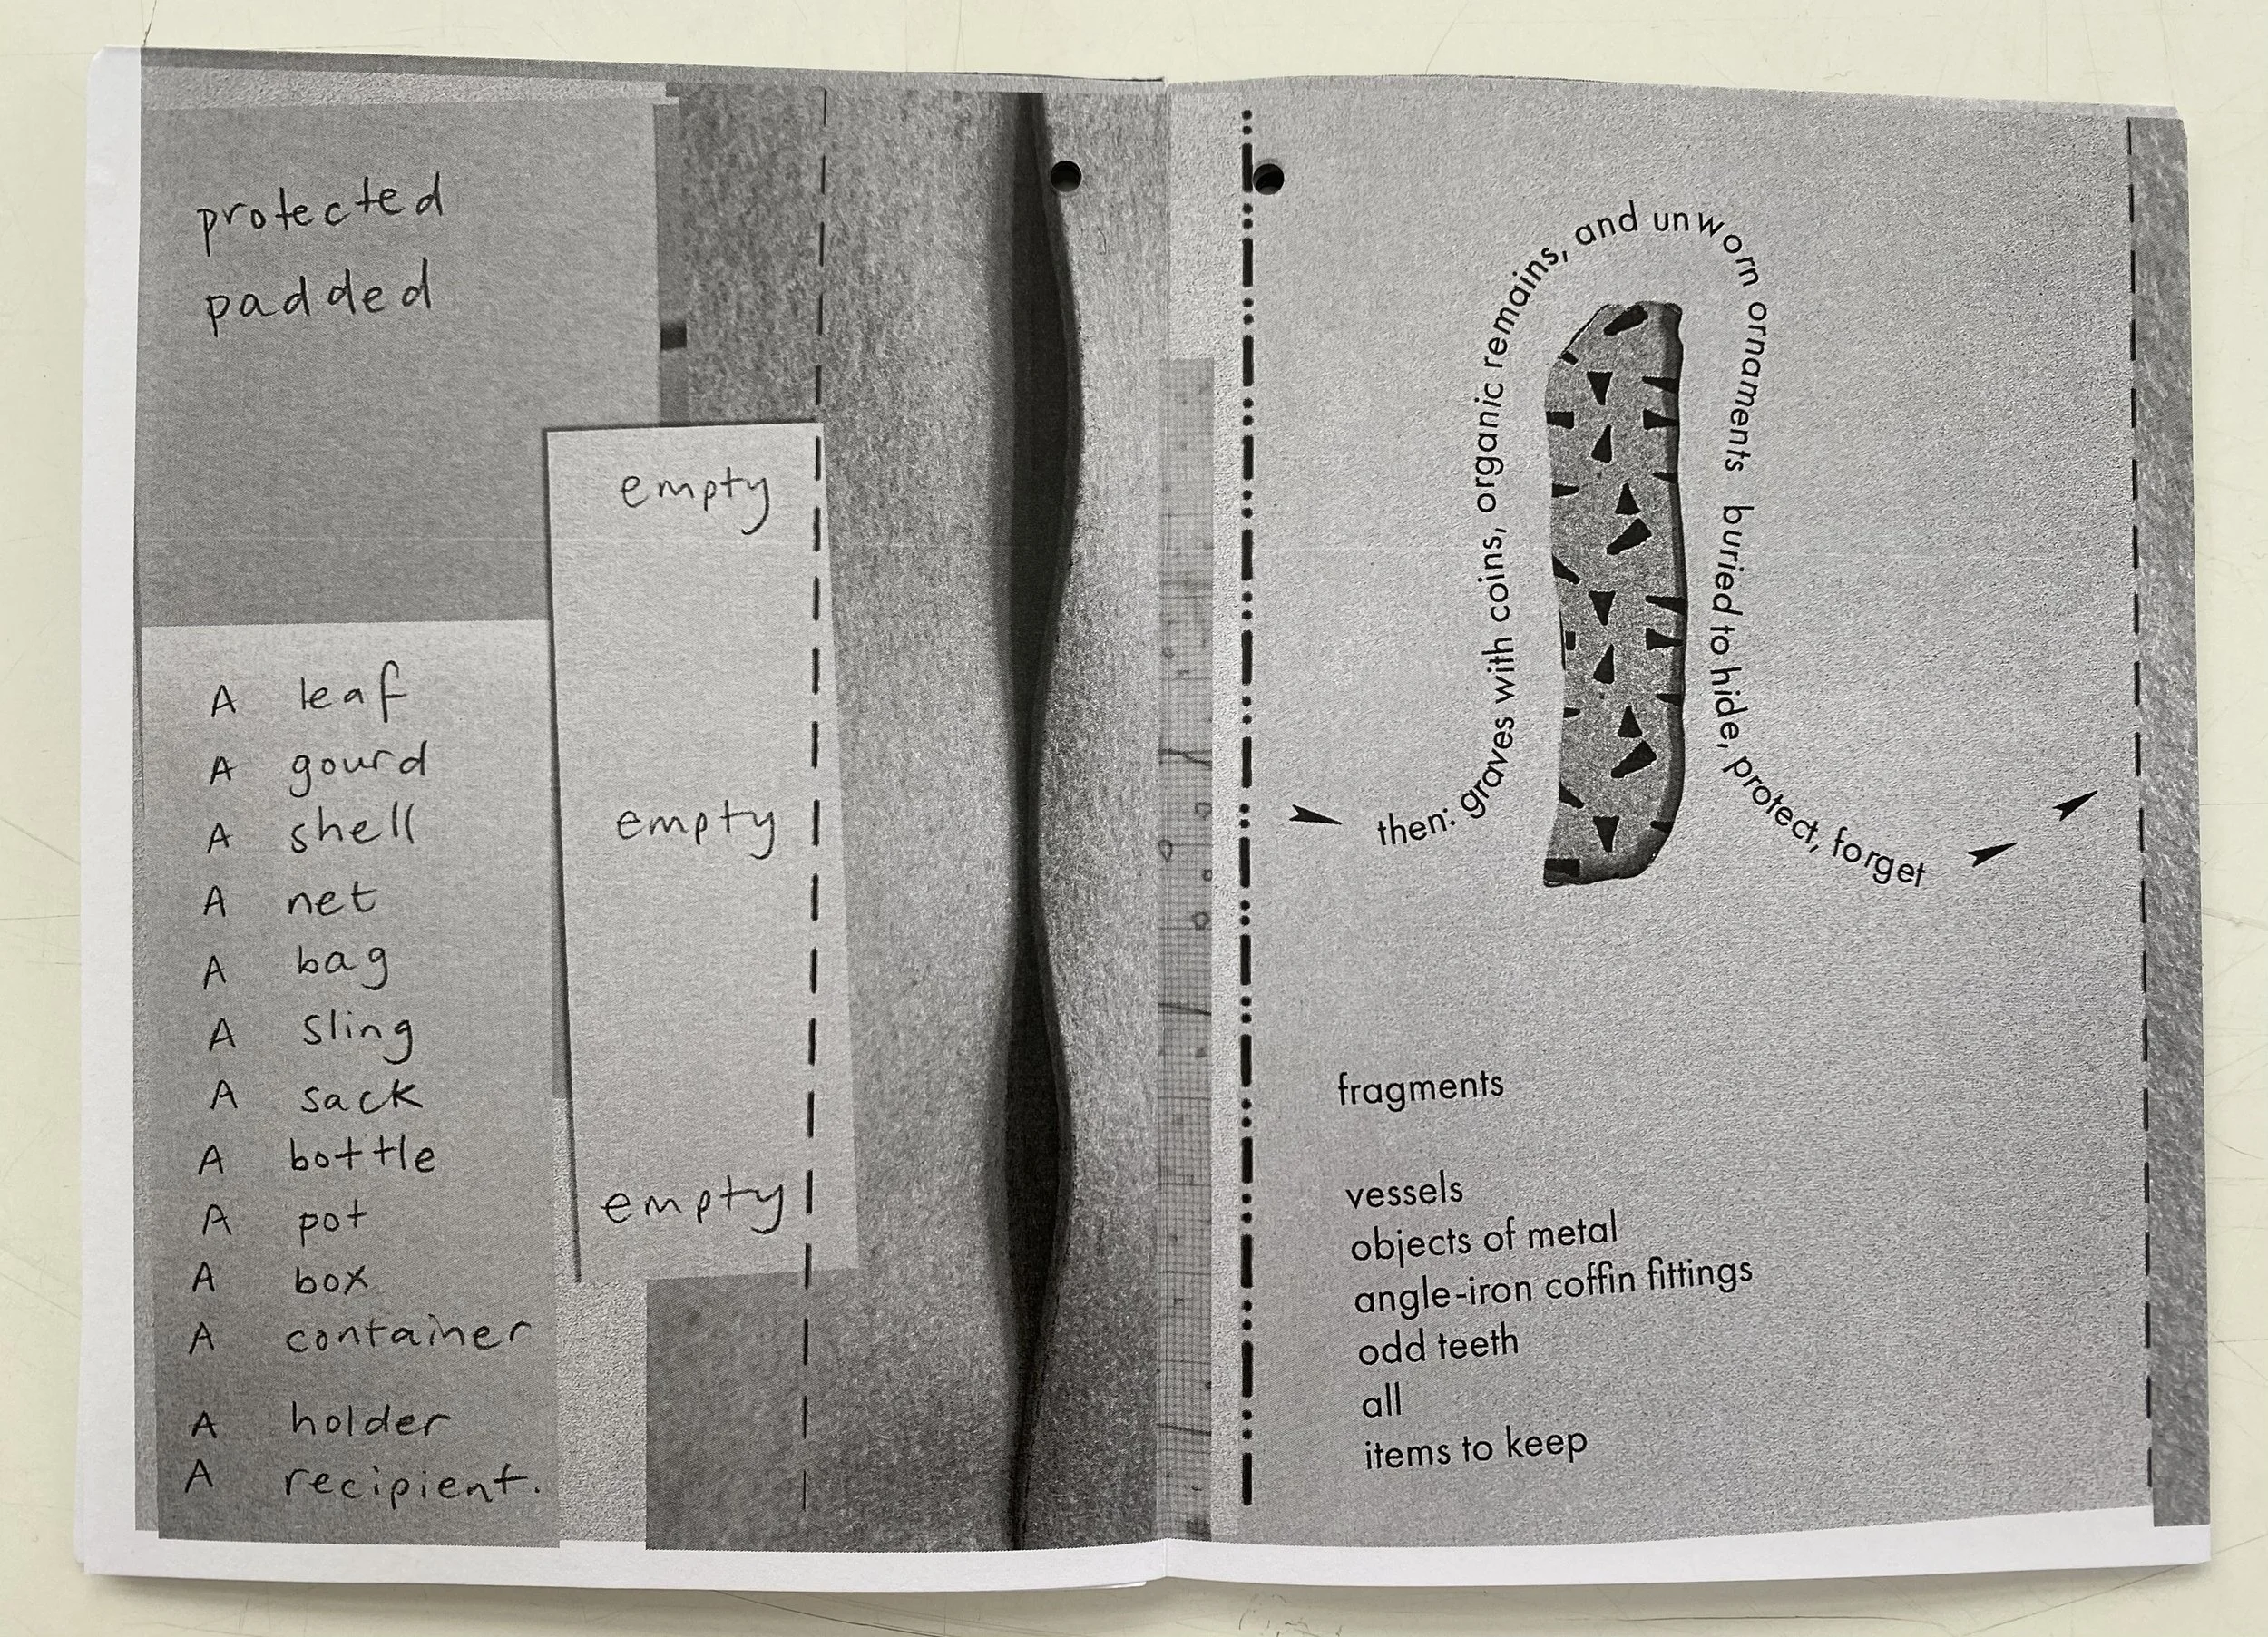 protected
padded
empty
empty
empty
A leaf
A gourd
A shell
A net
A bag
A sling
A sack
A bottle
A pot
A box
A container
A holder
A recipient.
then: graves with coins, organic remains, and unworn ornaments buried to hide, protect, forget
fragments
vessels
objects of metal
angle-iron coffin fittings
odd teeth
all
items to keep